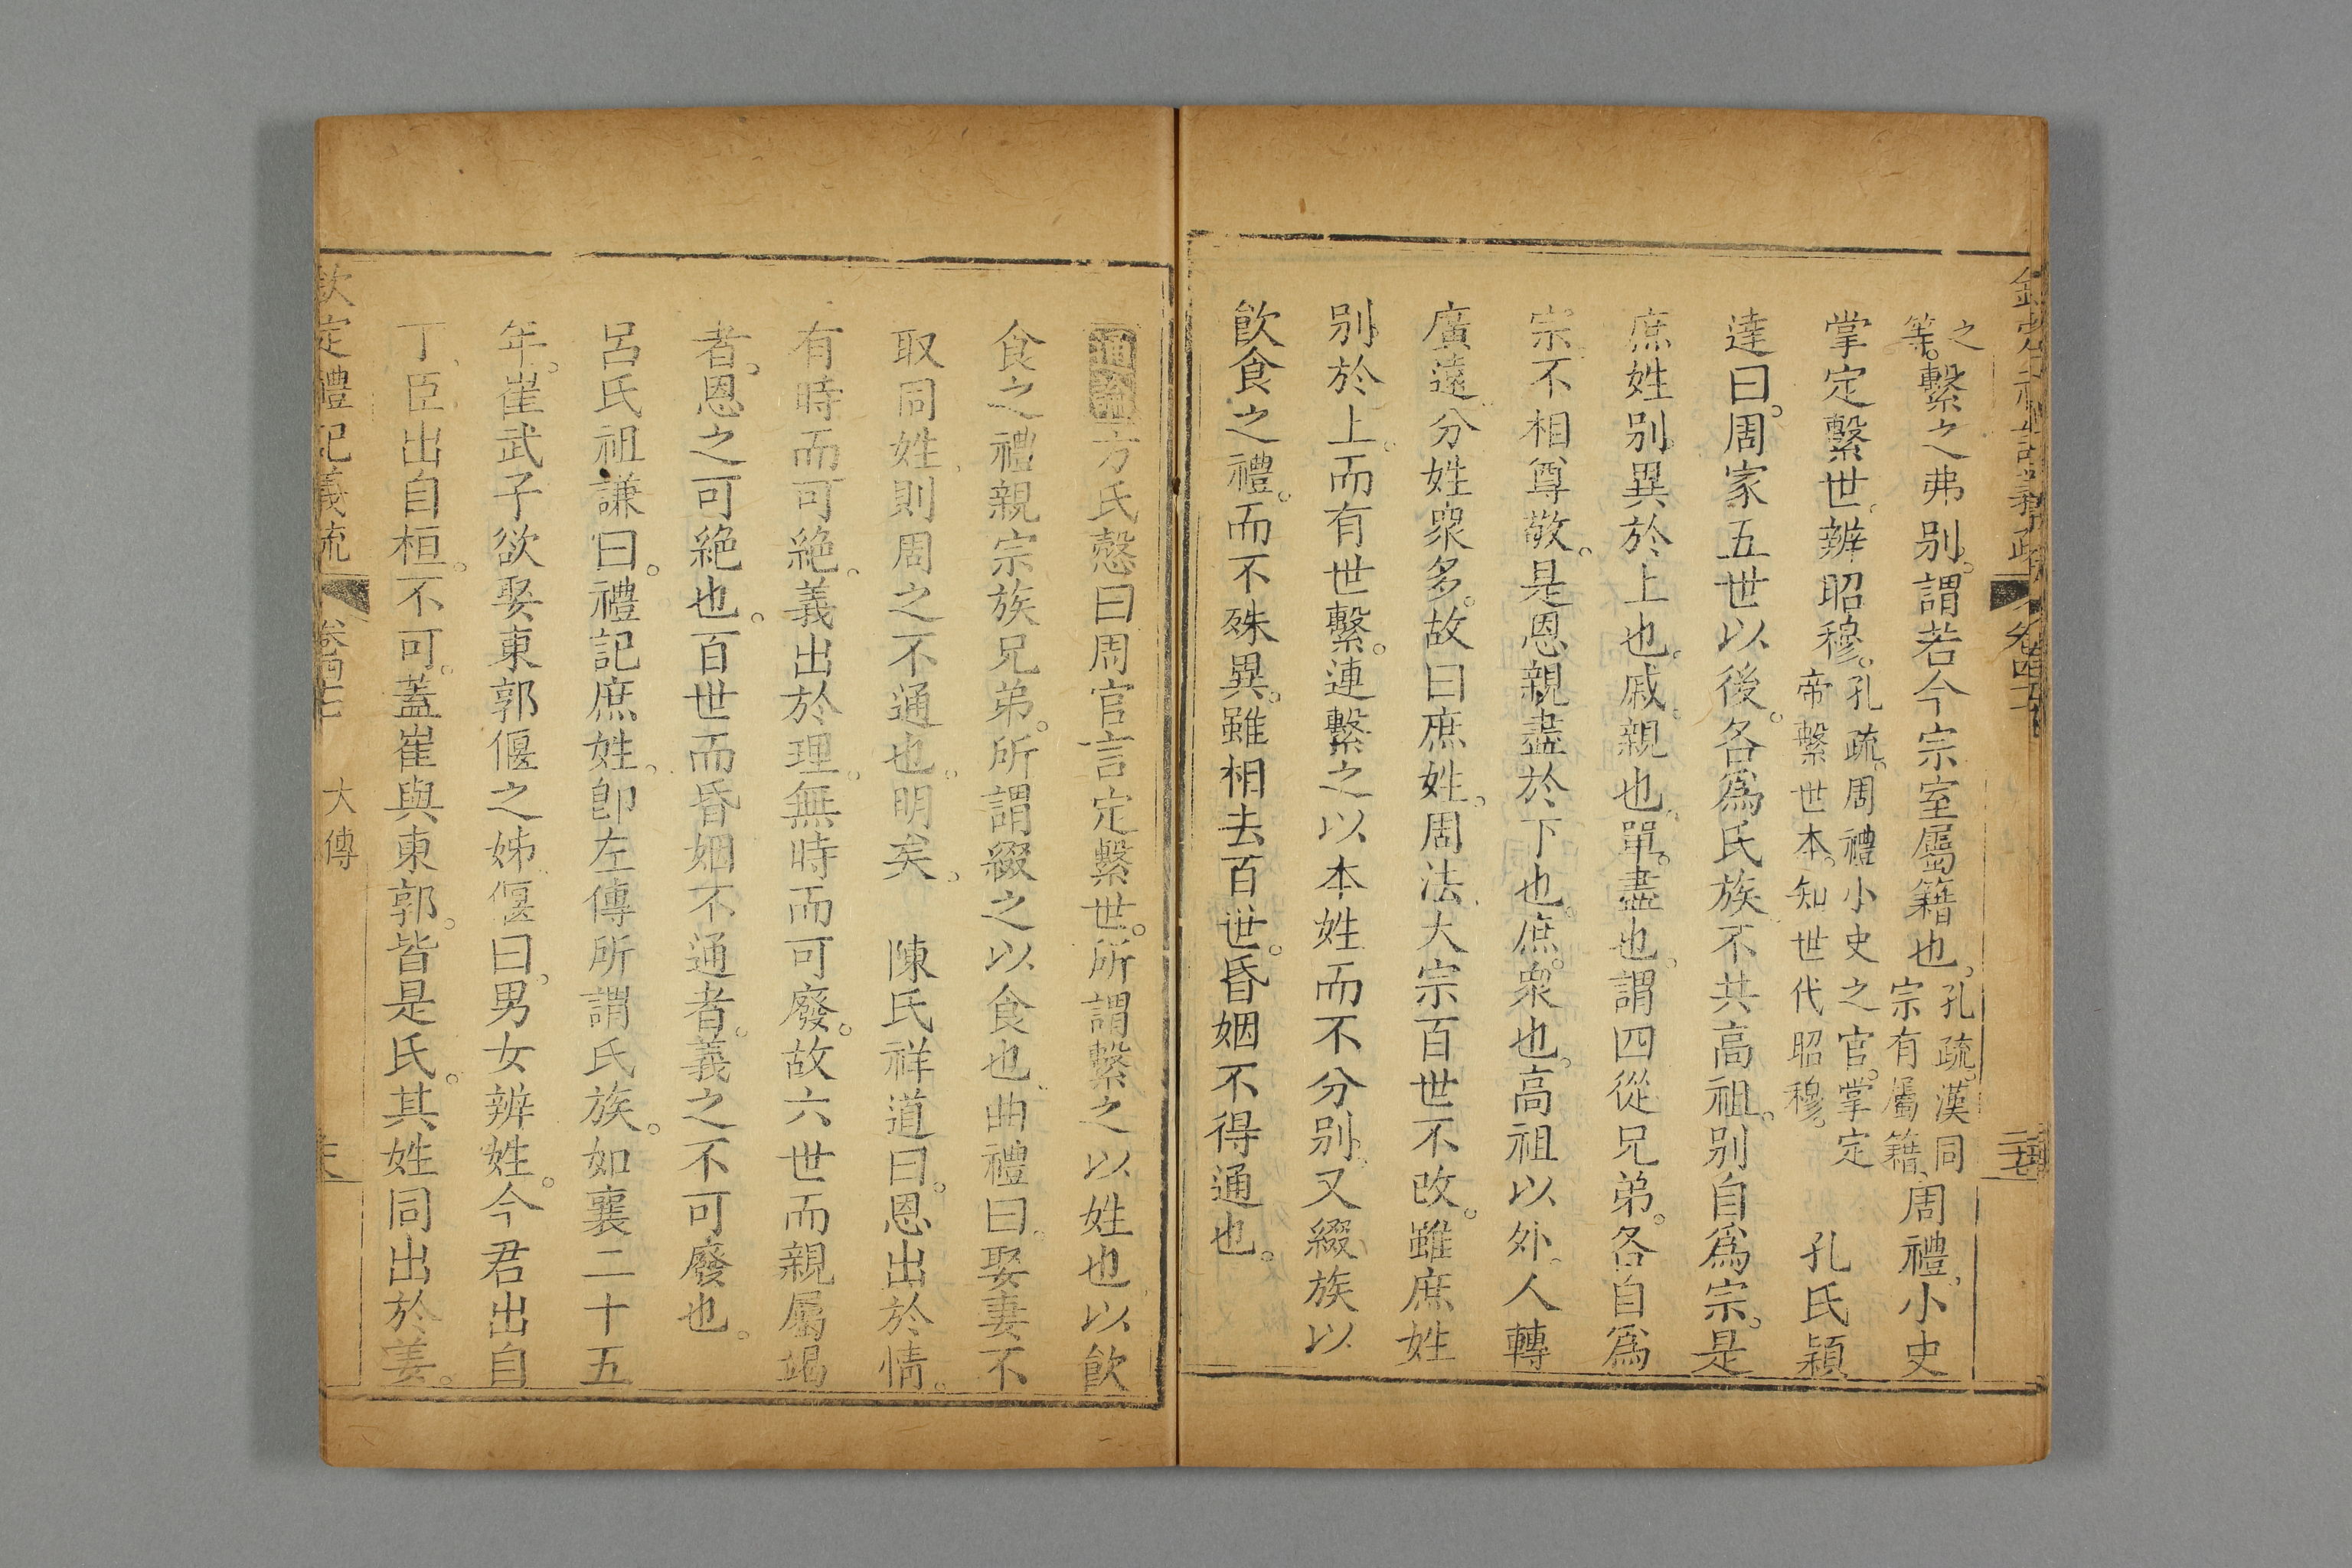 之等。繫之弗別。謂若今宗室屬籍也。孔疏。漢同宗有屬籍。周禮、小史
掌定繫世、辨昭穆。孔疏。周禮小史之官。掌定帝繫世本。知世代昭穆。 孔氏穎
達曰。周家五世以後。各爲氏族。不共高祖。別自爲宗。是
庶姓別異於上也。戚親也。單。盡也。謂四從兄弟。各自爲
宗。不相尊敬。是恩親盡於下也。庶。衆也。高祖以外。人轉
廣遠。分姓衆多。故曰庶姓。周法。大宗百世不改。雖庶姓
別於上。而有世繫。連繫之以本姓而不分別。又綴族以
飲食之禮。而不殊異。雖相去百世。昏姻不得通也。
通論方氏慤曰周官言定繫世。所謂繫之以姓也以飲
食之禮親宗族兄弟。所謂綴之以食也。曲禮曰。娶妻不
取同姓、則周之不通也。明矣。 陳氏祥道曰。恩出於情。
有時而可絶。義出於理。無時而可廢。故六世而親屬竭
者。恩之可絶也。百世而昏姻不通者。義之不可廢也。
呂氏祖謙曰。禮記庶姓。卽左傳所謂氏族。如襄二十五
年。崔武子欲娶東郭偃之姊。偃曰。男女辨姓。今君出自
丁、臣出自桓。不可。蓋崔與東郭。皆是氏。其姓同出於姜。
欽定禮記義疏 大傳